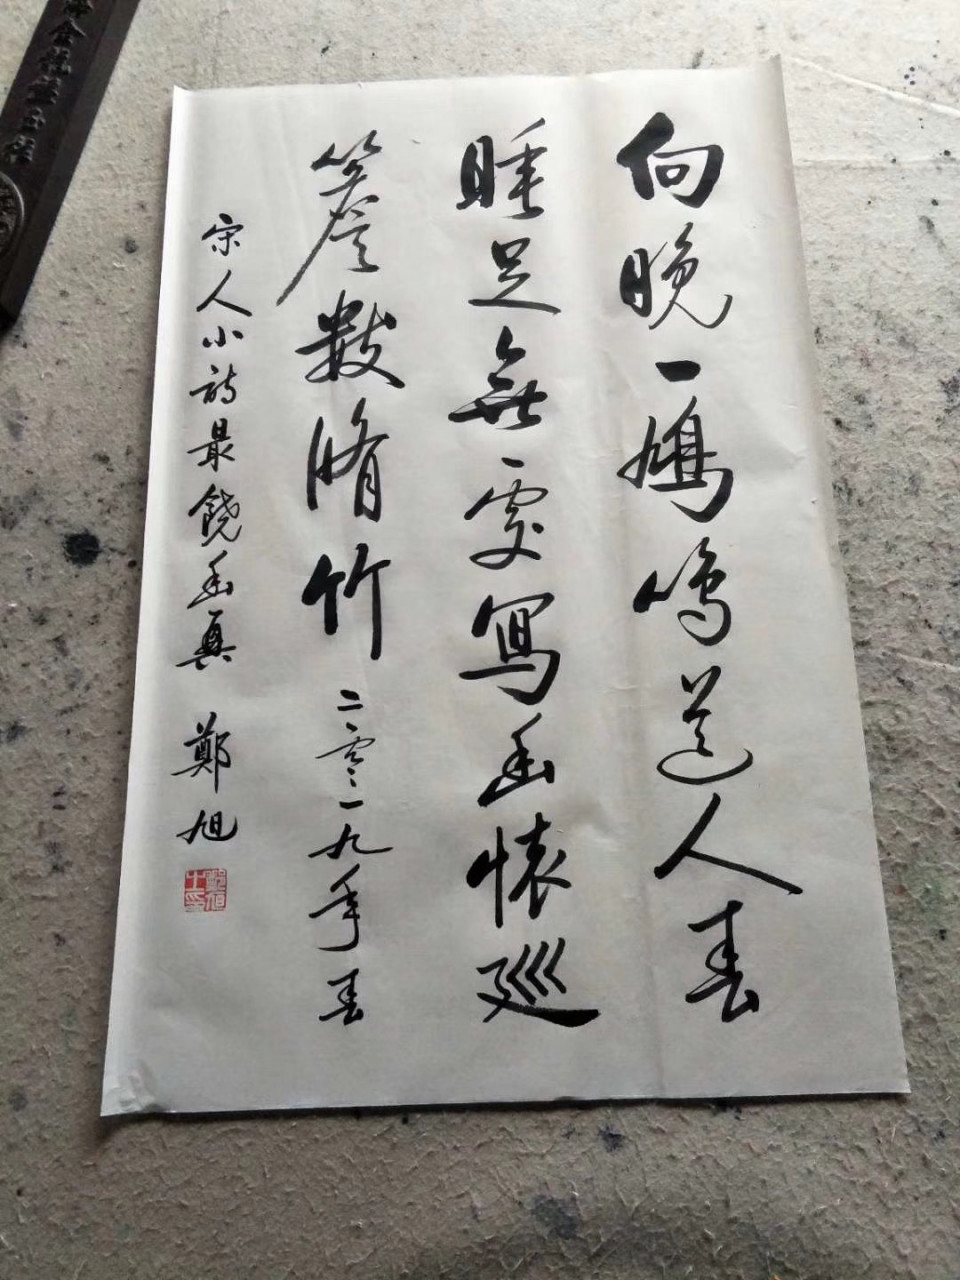 向晚一鳩鳴道人春
睡足無一處寫幽懷巡
簷数脩竹 二〇一九年春
宋人小詩最饒幽真 鄭旭